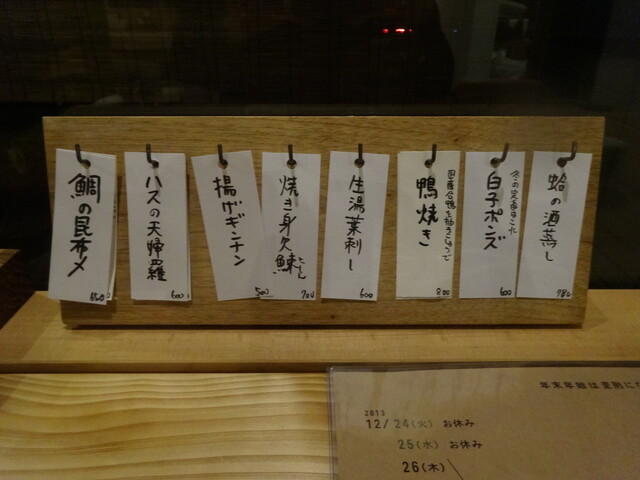 蛤の酒蒸し
980
冬の定番きた
白子ポンズ
600
国産合鴨を柚子こしょうで
鴨焼き
800
生湯葉刺し
600
焼き身欠鰊
にしん
700
揚げギンナン
500
ハスの天婦羅
600
鯛の昆布〆
850
2013
12/24(火) お休み
25(水) お休み
26(木)